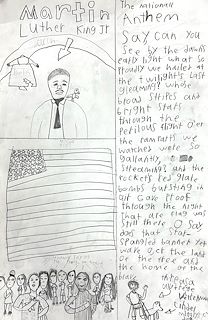 Martin
Luther King Jr
The nationall
Anthem
Say can you
See by the dawns
early light what so
proudly we hailed at
the twilights last
gleaming? Whose
brous stripes and
bright stars
through the
perilous fight O'er
the ramparts we
watched were so
gallantly,
Streaming? and the
rockets red glare
bombs bursting in
air Gave proof
through the night
that are flag was
Still there O Say
does that Star
spangled banner yet
wave O'er the land
or the free and
the home or the
brave